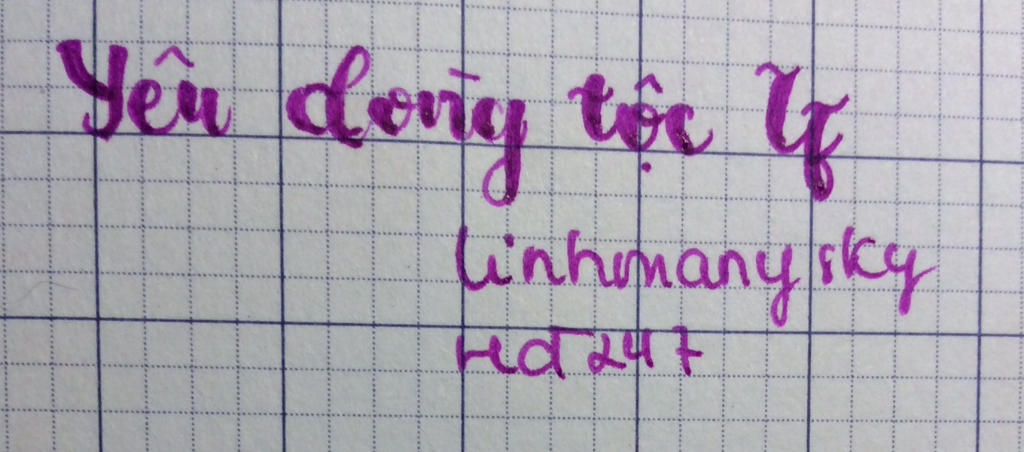 Yêu dong tộc
linhmany sky
247